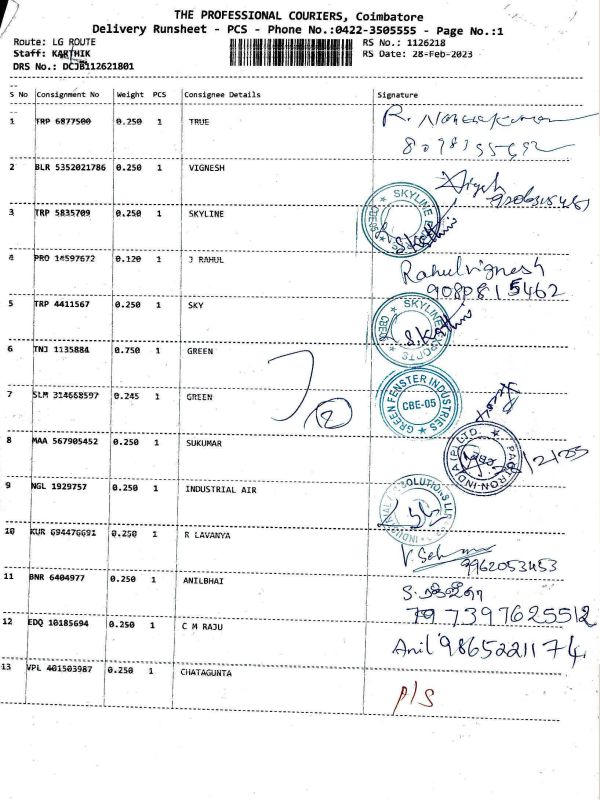 THE PROFESSIONAL COURIERS, Coimbatore
Delivery Runsheet - PCS - Phone No.:0422-3505555 - Page No.:1
Route: LG ROUTE RS No.: 1126218
Staff: KARTHIK RS Date: 28-Feb-2023
DRS No.: DCJB112621801
S No Consignment No Weight PCS Consignee Details Signature
1 TRP 6877500 0.250 1 TRUE R.
2 BLR 5352021786 0.250 1 VIGNESH
3 TRP 5835709 0.250 1 SKYLINE SKYLINE CBE-05
4 PRO 14597672 0.120 1 J RAHUL Rahulvignesh
9080815462
5 TRP 4411567 0.250 1 SKY SKYLINE EXPORTS CBE-05
6 TNJ 1135884 0.750 1 GREEN
7 SLM 314668597 0.245 1 GREEN 2 GREEN FENSTER INDUSTRIES CBE-05
8 MAA 567905452 0.250 1 SUKUMAR INDIA (P) LTD.
9 NGL 1929757 0.250 1 INDUSTRIAL AIR INDUSTRIAL SOLUTIONS LLP
10 KUR 694476691 0.250 1 R LAVANYA
9962053453
11 BNR 6404977 0.250 1 ANILBHAI
7397625512
12 EDQ 10185694 0.250 1 C M RAJU Anil 9865221174
13 VPL 401503987 0.250 1 CHATAGUNTA P/S